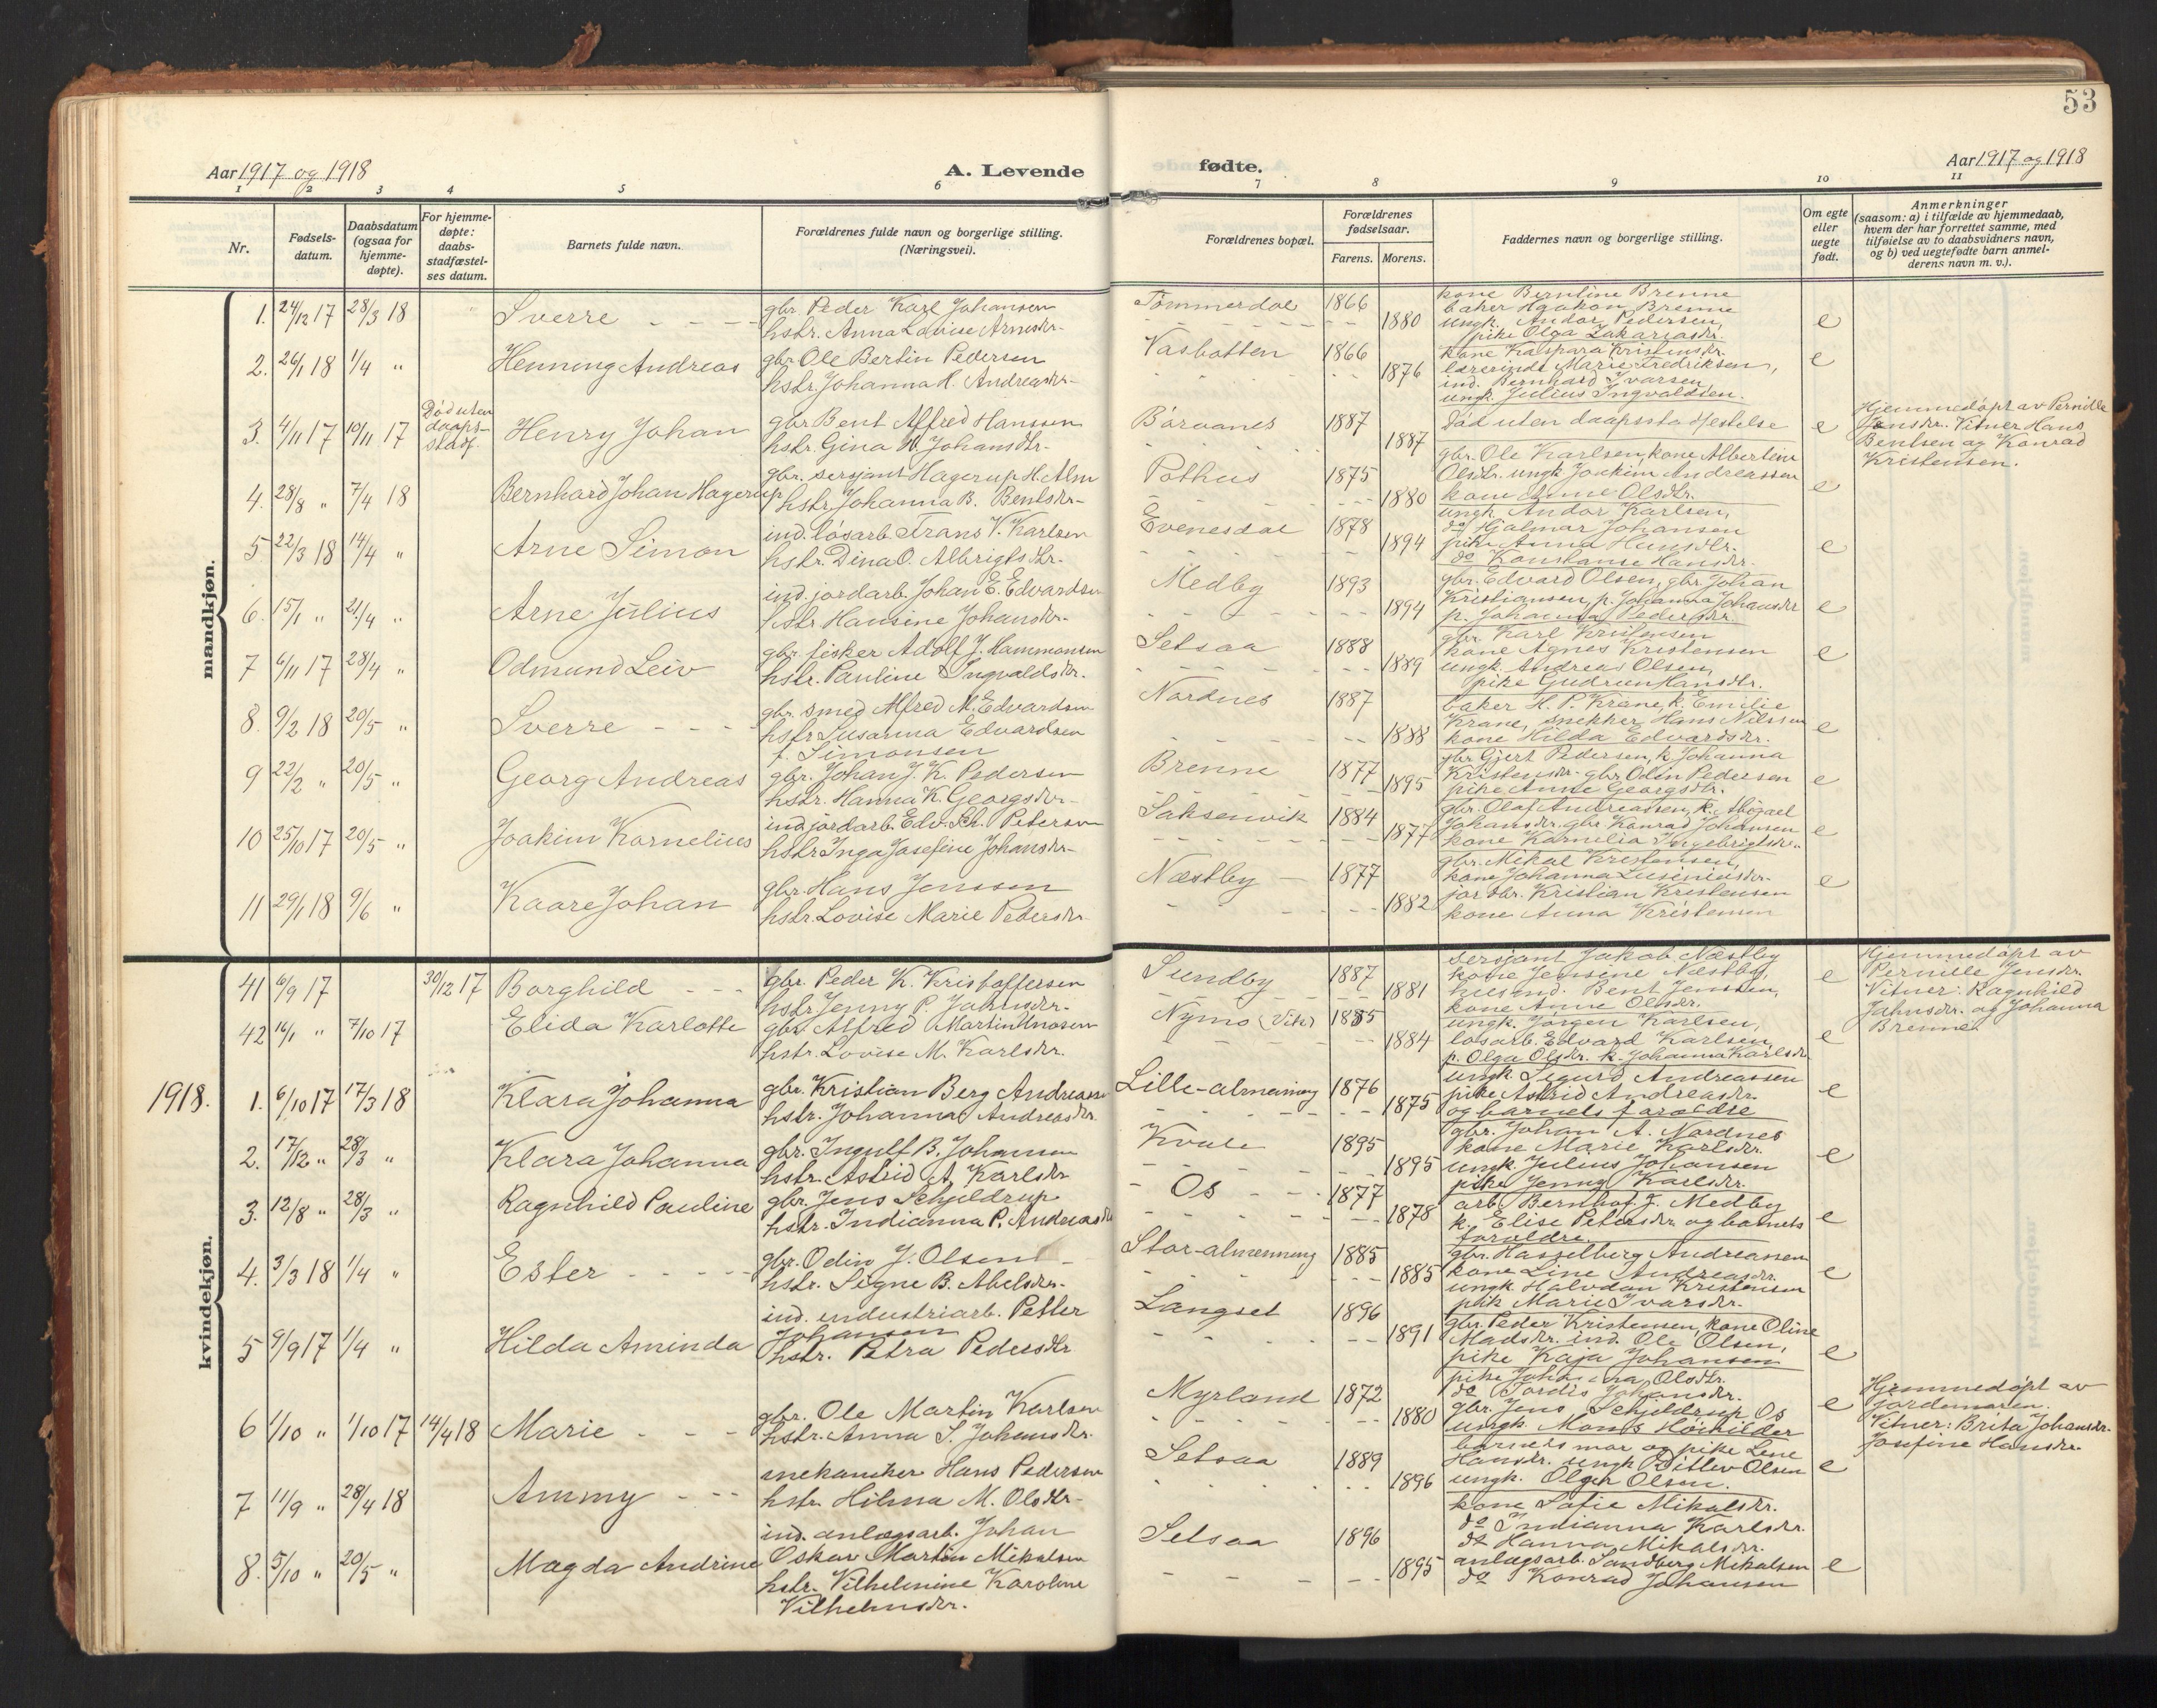 53
Aar 1917 og 1918
A. Levende
fødte.
Aar 1917 og 1918
1 2 3 4 5 6 7 8 9 10 11
Nr.
Fødsels-
datum.
Daabsdatum
(ogsaa for
hjemme-
døpte).
For hjemme-
døpte:
daabs-
stadfæstel-
ses datum.
Barnets fulde navn.
Forældrenes fulde navn og borgerlige stilling.
(Næringsvei).
Forældrenes bopæl.
Forældrenes
fødselsaar.
Farens. Morens.
Faddernes navn og borgerlige stilling.
Om egte
eller
uegte
født.
Anmerkninger
(saasom: a) i tilfælde av hjemmedaab,
hvem der har forrettet samme, med
tilføielse av to daabsvidners navn,
og b) ved uegtefødte barn anmel-
derens navn m. v.).
mandkjøn.
1. 24/12 17 28/3 18 Sverre
gbr. Peder Karl Johansen
hstr. Anna Lovise Arnesdr.
Tømmerdal 1866 1880
kone Berntine Brenne
baker Haakon Brenne
ungk. Andor Pedersen,
pike Olga Zakariasdr.
e
2. 26/1 18 1/4 " Henning Andreas
gbr. Ole Bertin Pedersen
hstr. Johanna K. Andreasdr.
Vasbotten 1866 1876
kone Kaspara Kristensdr.
lærerinde Marie Fredriksen,
ind. Bernhard Ivarsen,
ungk. Julius Ingvaldsen.
e
3. 4/11 17 10/11 17 Død uten
daaps-
stadf.
Henry Johan
gbr. Bent Alfred Hansen
hstr. Gina N. Johansdtr.
Børvanes 1887 1887
Død uten daapsstadfestelse
e
Hjemmedøpt av Pernille
Jensdr. Vitner Hans
Bentsen og Konrad
Kristensen.
4. 28/8 " 7/4 18 Bernhard Johan Hagerup
gbr. sersjant Hagerup H. Alm
hstr. Johanna B. Bentsdr.
Pothus 1875 1880
gbr. Ole Karlsen, kone Albertine
Olsdtr. ungk. Joakim Andreassen
kone Anne Olsdtr.
e
5 22/3 18 14/4 " Arne Simon
ind. løsarb. Frans V. Karlsen
hstr. Dina O. Albrigtsdtr.
Evenesdal 1878 1894
ungk. Andor Karlsen,
do Hjalmar Johansen
pike Anna Hansdtr.
do Konstanse Hansdr.
e
6. 15/1 " 21/4 " Arne Julius
ind. jordarb. Johan E. Edvardsen
hstr. Hansine Johansdr.
Medby 1893 1894
gbr. Edvard Olsen, gbr. Johan
Kristiansen, p. Johanna Johansdtr
p. Johanna Pedersdr.
e
7 6/11 17 28/4 " Odmund Leiv
gbr. fisker Adolf J. Hammonsen
hstr. Pauline Ingvaldsdr.
Setsaa 1888 1889
gbr. Karl Kristensen
kone Agnes Kristensen
ungk. Andreas Olsen,
pike Gudrun Hansdtr.
e
8. 9/2 18 20/5 " Sverre
gbr. smed Alfred M. Edvardsen
hstr Susanna Edvardsen
f. Simonsen
Nordnes 1887 1888
baker H. P. Krane, k. Emilie
Krane, snekker Hans Nilssen
kone Hilda Edvardsdr.
e
9 22/2 " 20/5 " Georg Andreas
gbr. Johan J. K. Pedersen
hstr. Hanna K. Georgsdtr.
Brenne 1877 1895
gbr. Gjert Pedersen, k. Johanna
Kristensdr. gbr. Odin Pedersen
pike Anne Georgsdtr.
e
10 25/10 17 20/5 " Joakim Kornelius
ind. jordarb. Edv. Sch. Petersen
hstr. Inga Josefine Johansdr.
Saksenvik 1884 1877
gbr. Olaf Andreassen, k. Abigael
Johansdr. gbr. Konrad Johansen
kone Kornelia Ingebrigtsdr.
e
11 29/1 18 9/6 " Kaare Johan
gbr. Hans Jenssen
hstr. Lovise Marie Pedersdr
Næstby 1877 1882
gbr. Mikal Kristensen,
kone Johanna
gbr. Kristian Kristensen
kone Anna Kristensen
e
kvindekjøn.
41 6/9 17 30/12 17 Borghild
gbr. Peder K. Kristoffersen
hstr. Jenny P. Jahnsdr.
Sundby 1887 1881
sersjant Jakob Næstby
kone Jensine Næstby,
husmd. Bent Jenssen,
kone Anne Olsdr.
e
Hjemmedøpt av
Pernille Jensdr.
Vitner: Ragnhild
Jahnsdr. og Johanna
Brenne
42 16/1 " 7/10 17 Elida Karlotte
gbr. Alfred Martin Unosen
hstr. Lovise M. Karlsdr.
Nymo (Vik) 1885 1884
ungk. Jørgen Karlsen,
løsarb. Edvard Karlsen
p. Olga Olsdr. k. Johanna Karlsdr
e
1918.
1. 6/10 17 17/3 18 Klara Johanna
gbr. Kristian Berg Andreassen
hstr. Johanna Andreasdr.
Lille-almening 1876 1875
ungk. Sigurd Andreassen
pike Astrid Andreasdr.
og barnets forældre
e
2. 17/12 " 28/3 " Klara Johanna
gbr. Ingulf B. Johansen
hstr. Astrid A. Karlsdr
Kvale 1895 1895
gbr. Johan A. Nordnes
kone Marie Karlsdr.
ungk. Julius Johansen
pike Jenny Karlsdr.
e
3. 12/8 " 28/3 " Ragnhild Pauline
gbr. Jens Schjeldrup
hstr. Indianna P. Andreasdr
Os 1877 1878
arb. Bernhof J. Medby
k. Elise Petersdr. og barnets
foreldre.
e
4. 3/3 18 1/4 " Ester
gbr. Odin J. Olsen
hstr. Signe B. Abelsdr.
Stor-almenning 1885 1885
gbr. Hasselberg Andreassen
kone Line Andreasdr.
ungk. Halvdan Kristensen
pik Marie Ivarsdr.
e
5 9/9 17 1/4 " Hilda Aminda
ind. industriarb. Petter
Johansen
hstr. Petra Pedersdtr
Langset 1896 1891
gbr. Peder Kristensen, kone Oline
Madsdr. ind. Ole Olsen,
pike Kaja Johansen
e
6 1/10 " 1/10 17 14/4 18 Marie
gbr. Ole Martin Karlsen
hstr. Anna S. Johansdr.
Myrland 1872 1880
pike Johanna Olsdtr.
do Tordis Johansdr.
gbr. Jens Schjeldrup Os
ungk. Mons Høihilder
e
Hjemmedøpt av
jordemoren.
Vitner: Brita Johansdr.
Josefine Hansdr.
7 11/9 " 28/4 18 Ammy
mekaniker Hans Pedersen
hstr. Hilma M. Olsdtr
Setsaa 1889 1896
barnets mor og pike Lene
Hansdr. ungk. Ditlev Olsen
ungk. Olger Olsen.
e
8. 5/10 " 20/5 " Magda Andrine
ind. anlægsarb. Johan
Oskar Martin Mikalsen
hstr. Vilhelmine Karoline
Vilhelmsdr.
Setsaa 1896 1895
kone Sofie Mikalsdr.
do Indianna Karlsdr.
do Hanna Mikalsdr.
anlægsarb. Sandberg Mikalsen
do Konrad Johansen
e